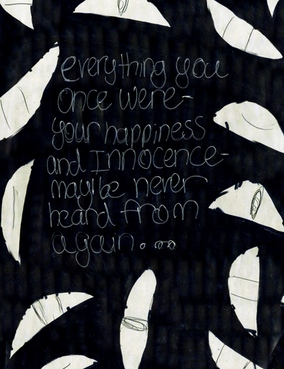 everything you
once were-
your happiness
and Innocence-
maybe never
heard from
again. ...